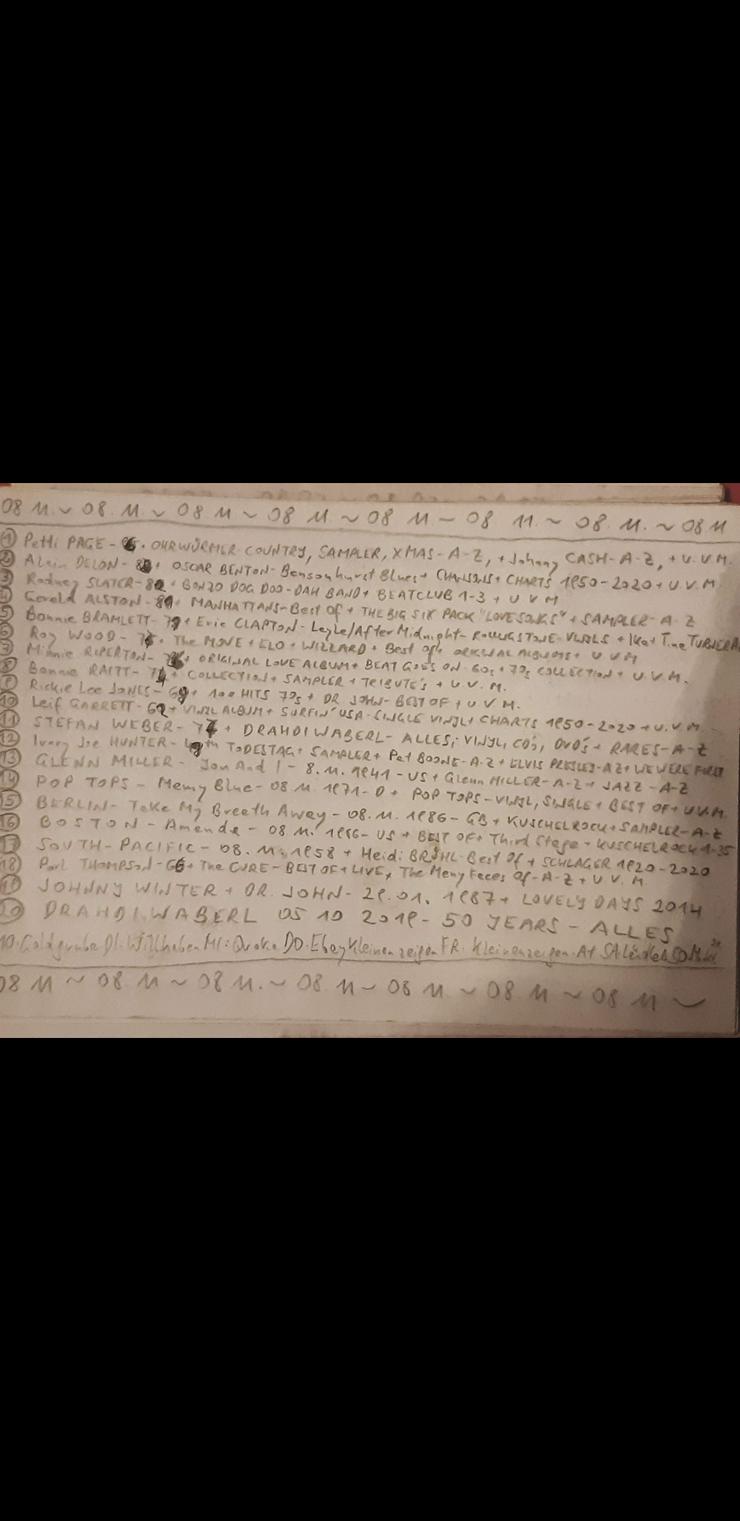 08 11. ~ 08. 11 ~ 08 11 ~ 08 11 ~ 08 11 ~ 08 11. ~ 08. 11. ~ 08 11
① Patti PAGE - + OHRWÜRMER COUNTRY, SAMPLER, XMAS - A-Z, + Johnny CASH - A-Z, + U.V.M.
② Alain DELON - + OSCAR BENTON - Bensonhurst Blues + CHANSONS + CHARTS 1950-2020 + U.V.M.
③ Rodney SLATER - 82 + BONZO DOG DOO-DAH BAND + BEATCLUB 1-3 + U V M
④ Gerald ALSTON - + MANHATTANS - Best Of + THE BIG SIX PACK "LOVESONGS" + SAMPLER - A-Z
⑤ Bonnie BRAMLETT - + Eric CLAPTON - Layla/After Midnight - ROLLINGSTONE - VINYLS + Ike + Tina TURNER
⑥ Roy WOOD - + The MOVE + ELO + WIZZARD + Best Of + ORIGINAL ALBUMS + U V M
⑦ Minnie RIPERTON - + ORIGINAL LOVE ALBUM + BEAT GOES ON - 60s + 70s COLLECTION + U.V.M.
⑧ Bonnie RAITT - + COLLECTION + SAMPLER + TRIBUTE'S + U.V.M.
⑨ Rickie Lee JONES - + 100 HITS 70s + DR JOHN - BEST OF + U V M.
⑩ Leif GARRETT - + VINYL ALBUM + SURFIN' USA - SINGLE VINYL + CHARTS 1950-2020 + U.V.M.
⑪ STEFAN WEBER - + DRAHDIWABERL - ALLES, VINYL, CD's, DVD's + RARES - A-Z
⑫ Ivory Joe HUNTER - TODESTAG + SAMPLER + Pat BOONE - A-Z + ELVIS PRESLEY - AZ + WE WERE FIRST
⑬ GLENN MILLER - You And I - 8. 11. 1941 - US + Glenn MILLER - A-Z + JAZZ - A-Z
⑭ POP TOPS - Mamy Blue - 08 11. 1971 - D + POP TOPS - VINYL, SINGLE + BEST OF + U.V.M.
⑮ BERLIN - Take My Breath Away - 08. 11. 1986 - GB + KUSCHELROCK + SAMPLER - A-Z
⑯ BOSTON - Amanda - 08 11. 1986 - US + BEST OF + Third Stage + KUSCHELROCK 1-35
⑰ SOUTH - PACIFIC - 08. 11. 1958 + Heidi BRÜHL - Best Of + SCHLAGER 1920-2020
⑱ Porl THOMPSON - + The CURE - BEST OF + LIVE, The Many Faces Of - A-Z + U V. M
⑲ JOHNNY WINTER + DR. JOHN - 29. 01. 1987 + LOVELY DAYS 2014
⑳ DRAHDIWABERL 05 10 2019 - 50 YEARS - ALLES
MO. Goldgrube DI. Willhaben MI: Quoka DO. Ebay Kleinanzeigen FR. Kleinanzeigen. At SA.
08 11 ~ 08. 11 ~ 08 11. ~ 08 11 ~ 08 11 ~ 08 11 ~ 08 11 ~